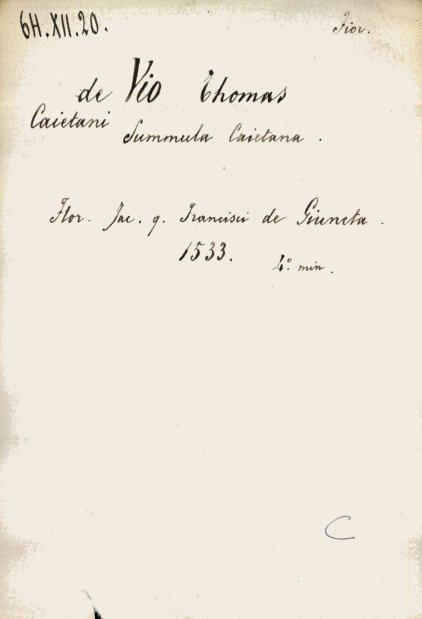 6H.XII.20. Fior.
de Vio Thomas
Caietani Summula Caietana.
Flor. Jac. q. Francisci de Giuncta.
1533. 4º min.
C